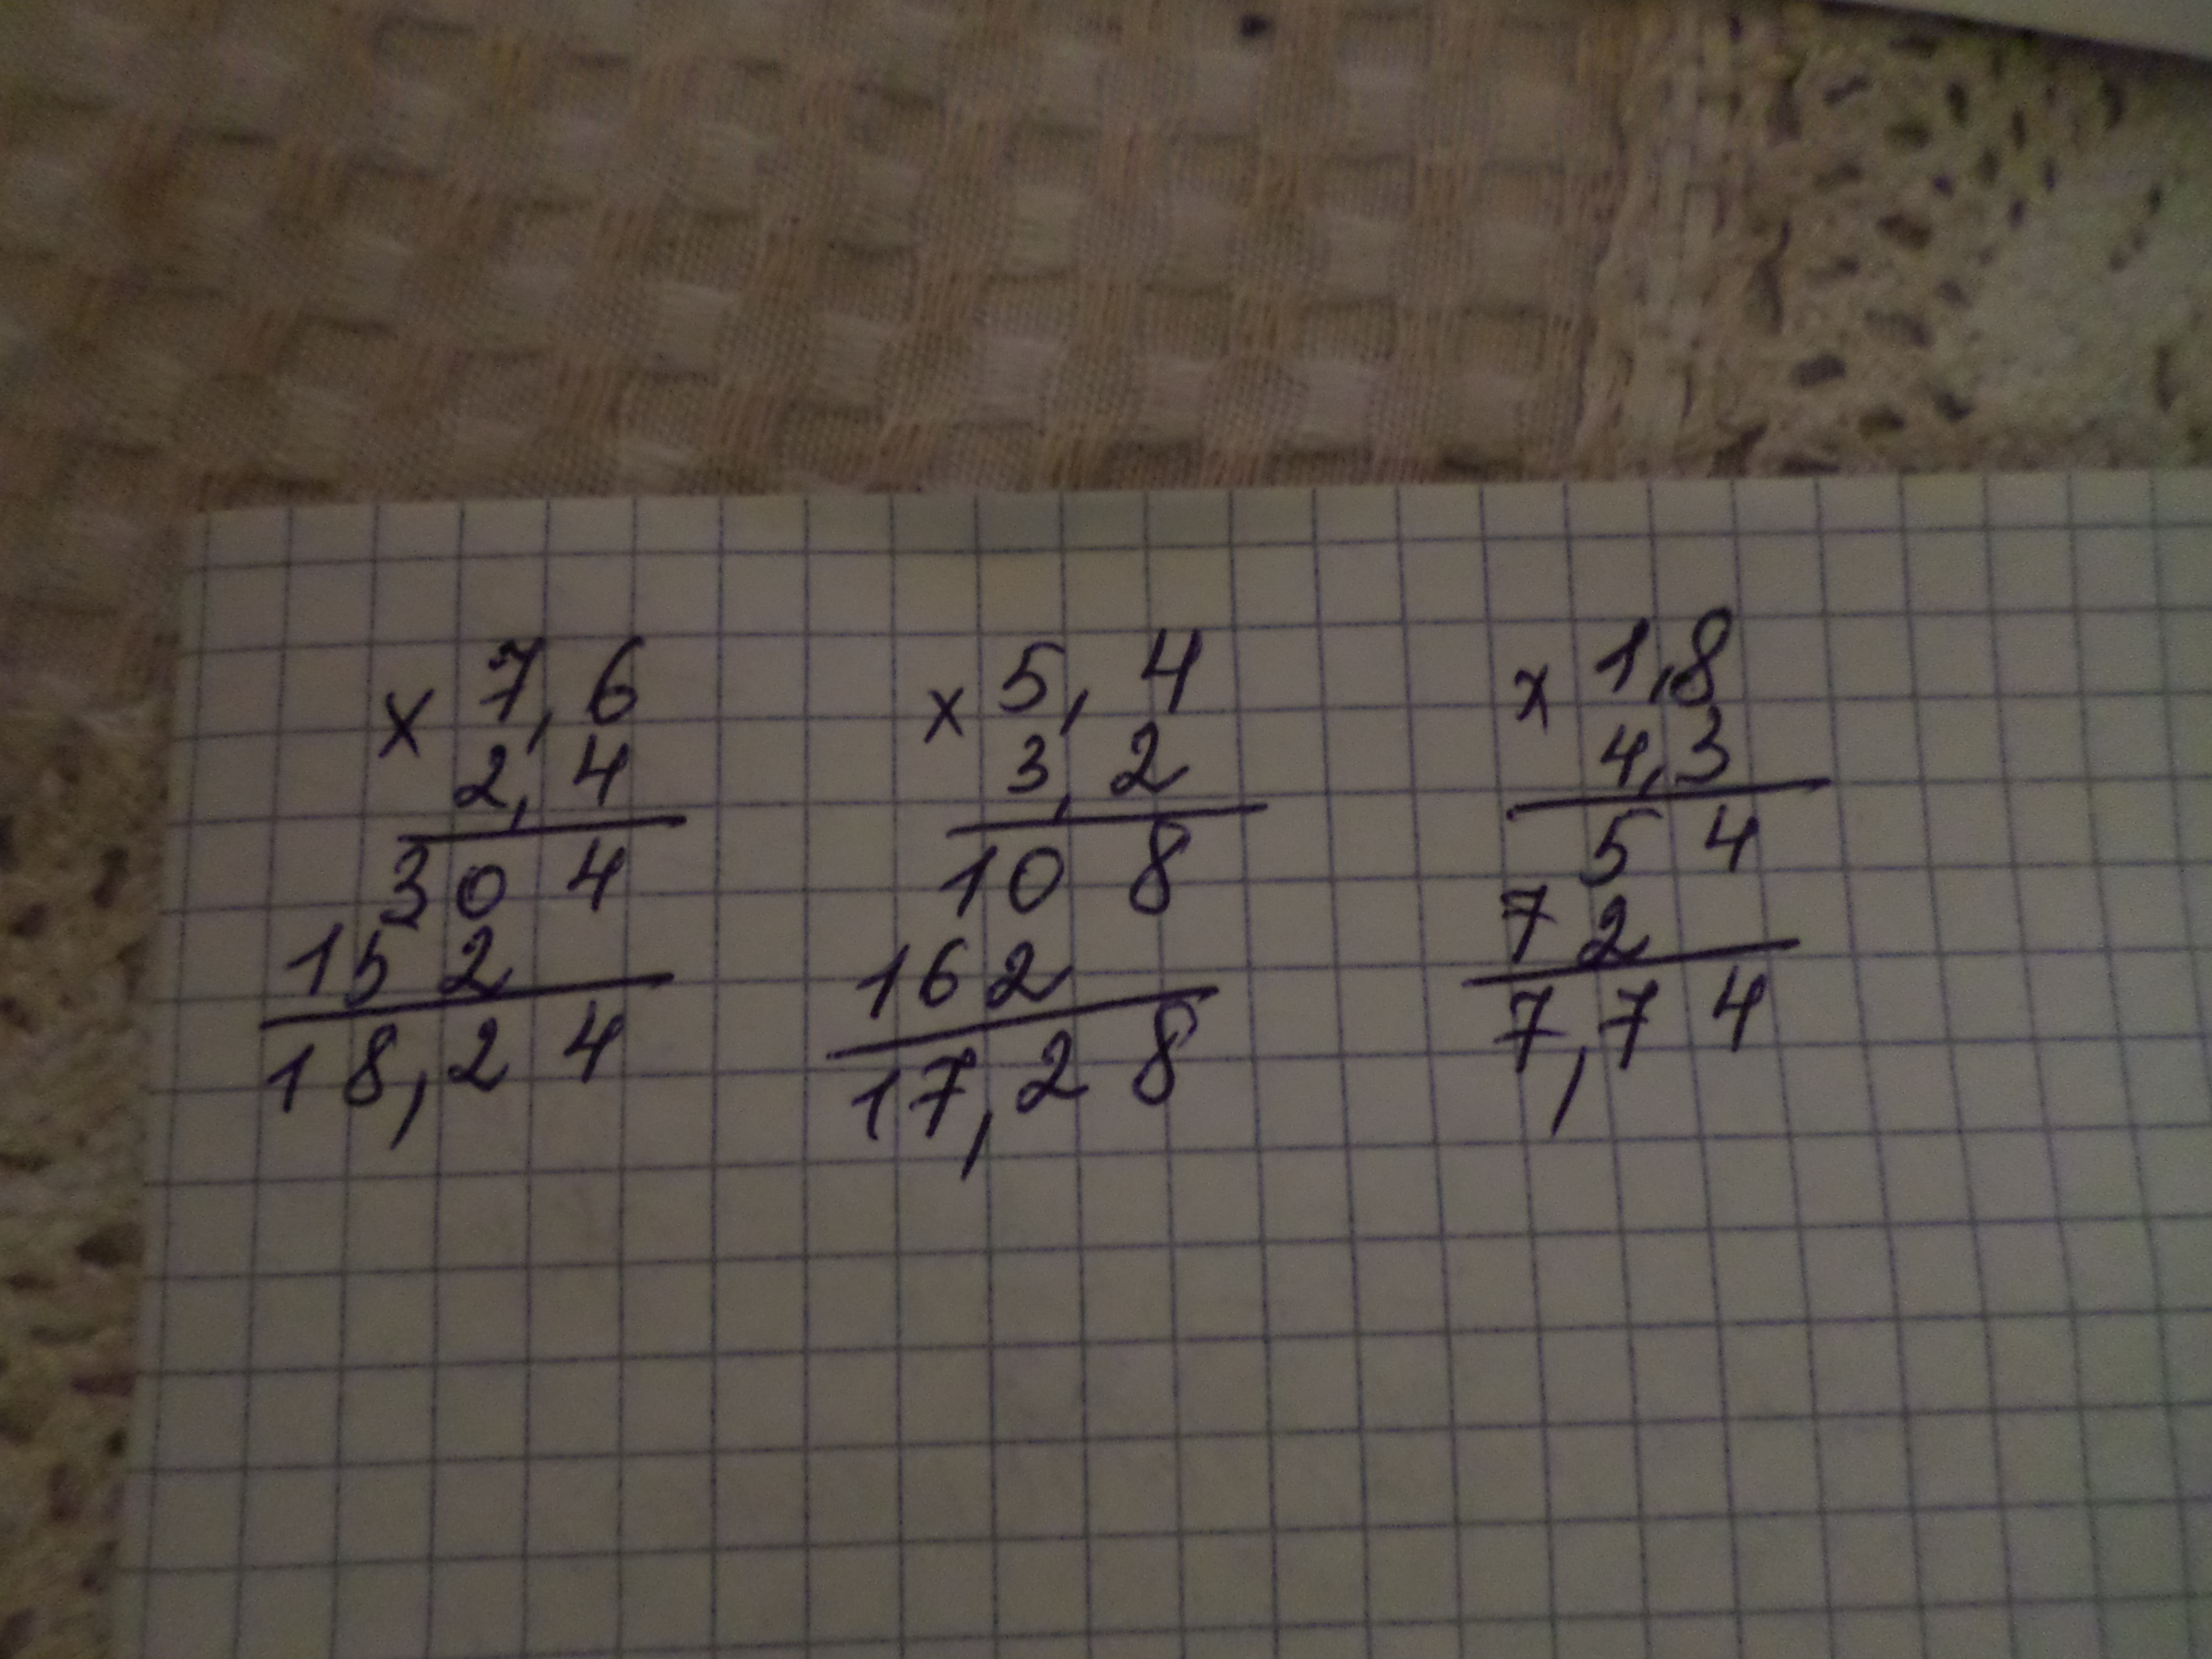 × 7,6
2,4
304
152
18,24
× 5,4
3,2
108
162
17,28
× 1,8
4,3
54
72
7,74